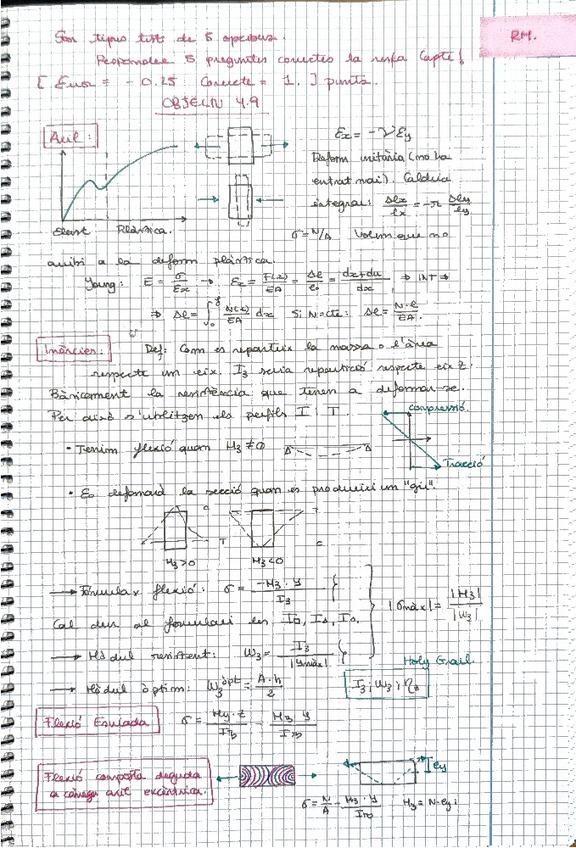 Son tipus test de 5 opcions.
RM.
Respondre 5 preguntes correctes la resta Capte!
[Error = - 0.25 Correcte = 1.] punts.
OBJECTIU 4.9
Axil:
Ex = -νEy
Deform unitària (no ha
entrat mai). Caldria
integrar: Δlx/lx = -ν Δly/ly
Elàst Plàstica.
σ=N/A Volem que no
arribi a la deform plàstica.
Young: E = σ/Ex → Ex = F(x)/EA = Δl/l0 = dx+du/dx ⇒ INT ⇒
⇒ Δl = ∫ N(x)/EA dx Si N=cte: Δl = N·l/EA.
Inèrcies:
Def: Com es reparteix la massa o l'àrea
respecte un eix. I3 seria repartició respecte eix z
Bàsicament la resistència que tenen a deformar-se.
Per això s'utilitzen els perfils I T.
compressió
• Tenim flexió quan M3 ≠ 0
Tracció
• Es deformarà la secció quan es produeixi un "gir".
C
T
T
C
M3>0
M3<0
→ Fórmula flexió: σ = -M3·y/I3
|σmàx| = |M3|/|W3|
Cal dur al formulari les
→ Mòdul resistent: W3 = I3/|ymàx|
Holy Grail
→ Mòdul òptim: W3 òpt = A·h/2
I3; W3; η3
Flexió Esviada
σ = My·z/Iy - M3·y/I3
Flexió composta deguda
a càrrega axil excèntrica.
ey
σ = N/A - M3·y/I3 M3 = N·ey;